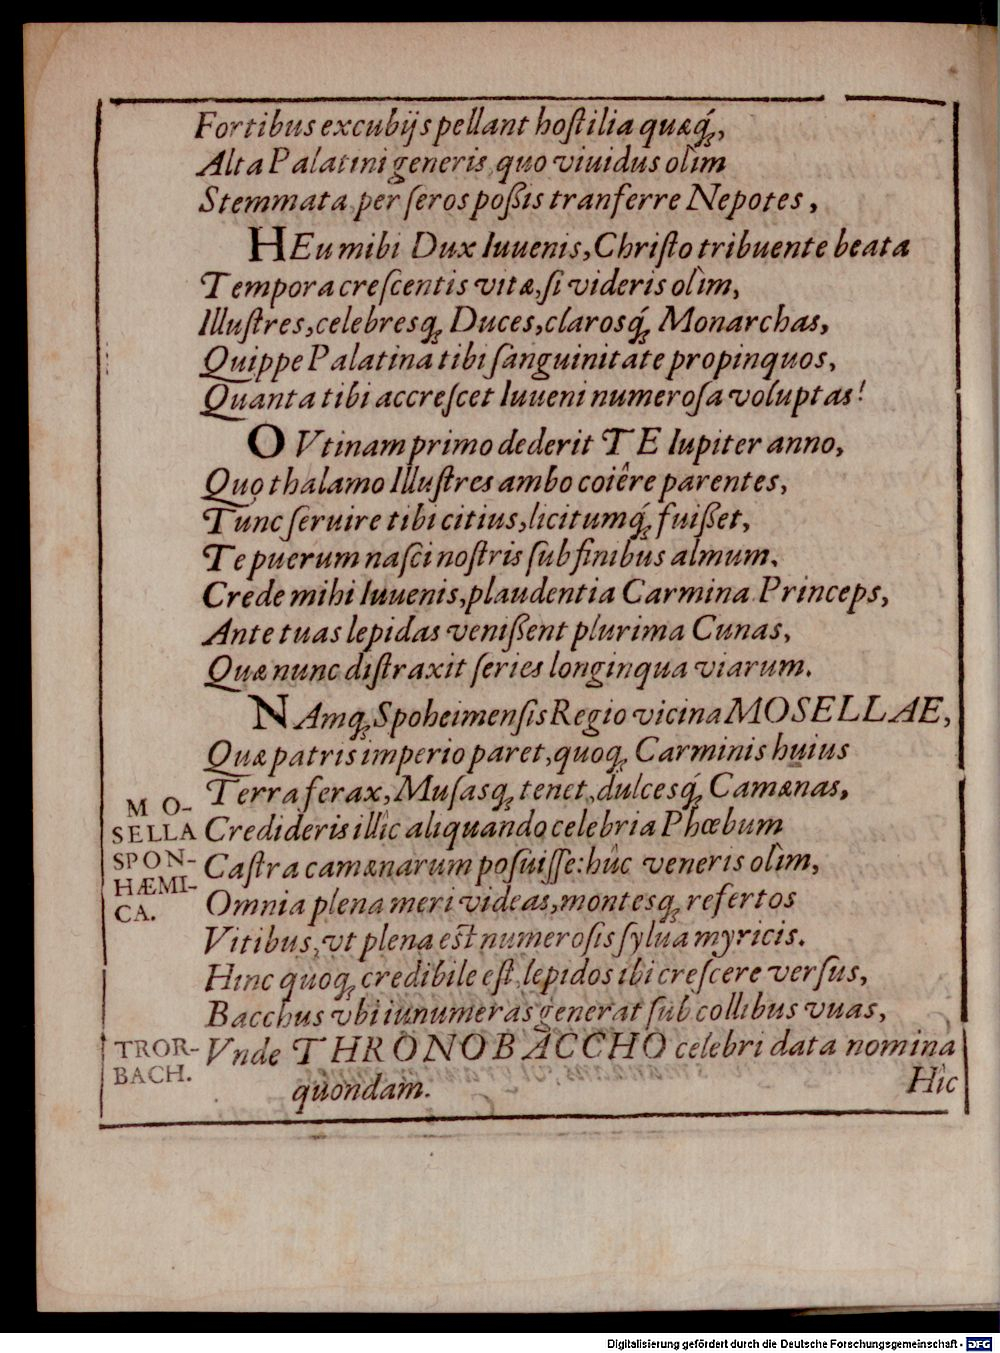 Fortibus excubijs pellant hoſtilia quæq́;,
Alta Palatini generis, quo viuidus olìm
Stemmata per ſeros poßis tranferre Nepotes,
HEu mihi Dux Iuuenis, Chriſto tribuente beata
Tempora creſcentis vitæ, ſi videris olìm,
Illuſtres, celebresq; Duces, clarosq́; Monarchas,
Quippe Palatina tibi ſanguinitate propinquos,
Quanta tibi accreſcet Iuueni numeroſa voluptas!
O Vtinam primo dederit TE Iupiter anno,
Quo thalamo Illuſtres ambo coiêre parentes,
Tunc ſeruire tibi citius, licitumq́; fuißet,
Te puerum naſci noſtris ſub finibus almum.
Crede mihi Iuuenis, plaudentia Carmina Princeps,
Ante tuas lepidas venißent plurima Cunas,
Quæ nunc diſtraxit ſeries longinqua viarum.
NAmq; Spoheimenſis Regio vicina MOSELLAE,
Quæ patris imperio paret, quoq; Carminis huius
Terra ferax, Muſasq; tenet, dulcesq́; Camænas,
MO-
SELLA
SPON-
HÆMI-
CA.
Credideris illîc aliquando celebria Phœbum
Caſtra camænarum poſuiſſe: hûc veneris olìm,
Omnia plena meri videas, montesq; refertos
Vitibus, vt plena eſt numeroſis ſylua myricis.
Hinc quoq; credibile eſt, lepidos ibi creſcere verſus,
Bacchus vbi iunumeras generat ſub collibus vuas,
TROR-
BACH.
Vnde THRONO BACCHO celebri data nomina
quondam.
Hìc
Digitalisierung gefördert durch die Deutsche Forschungsgemeinschaft - DFG